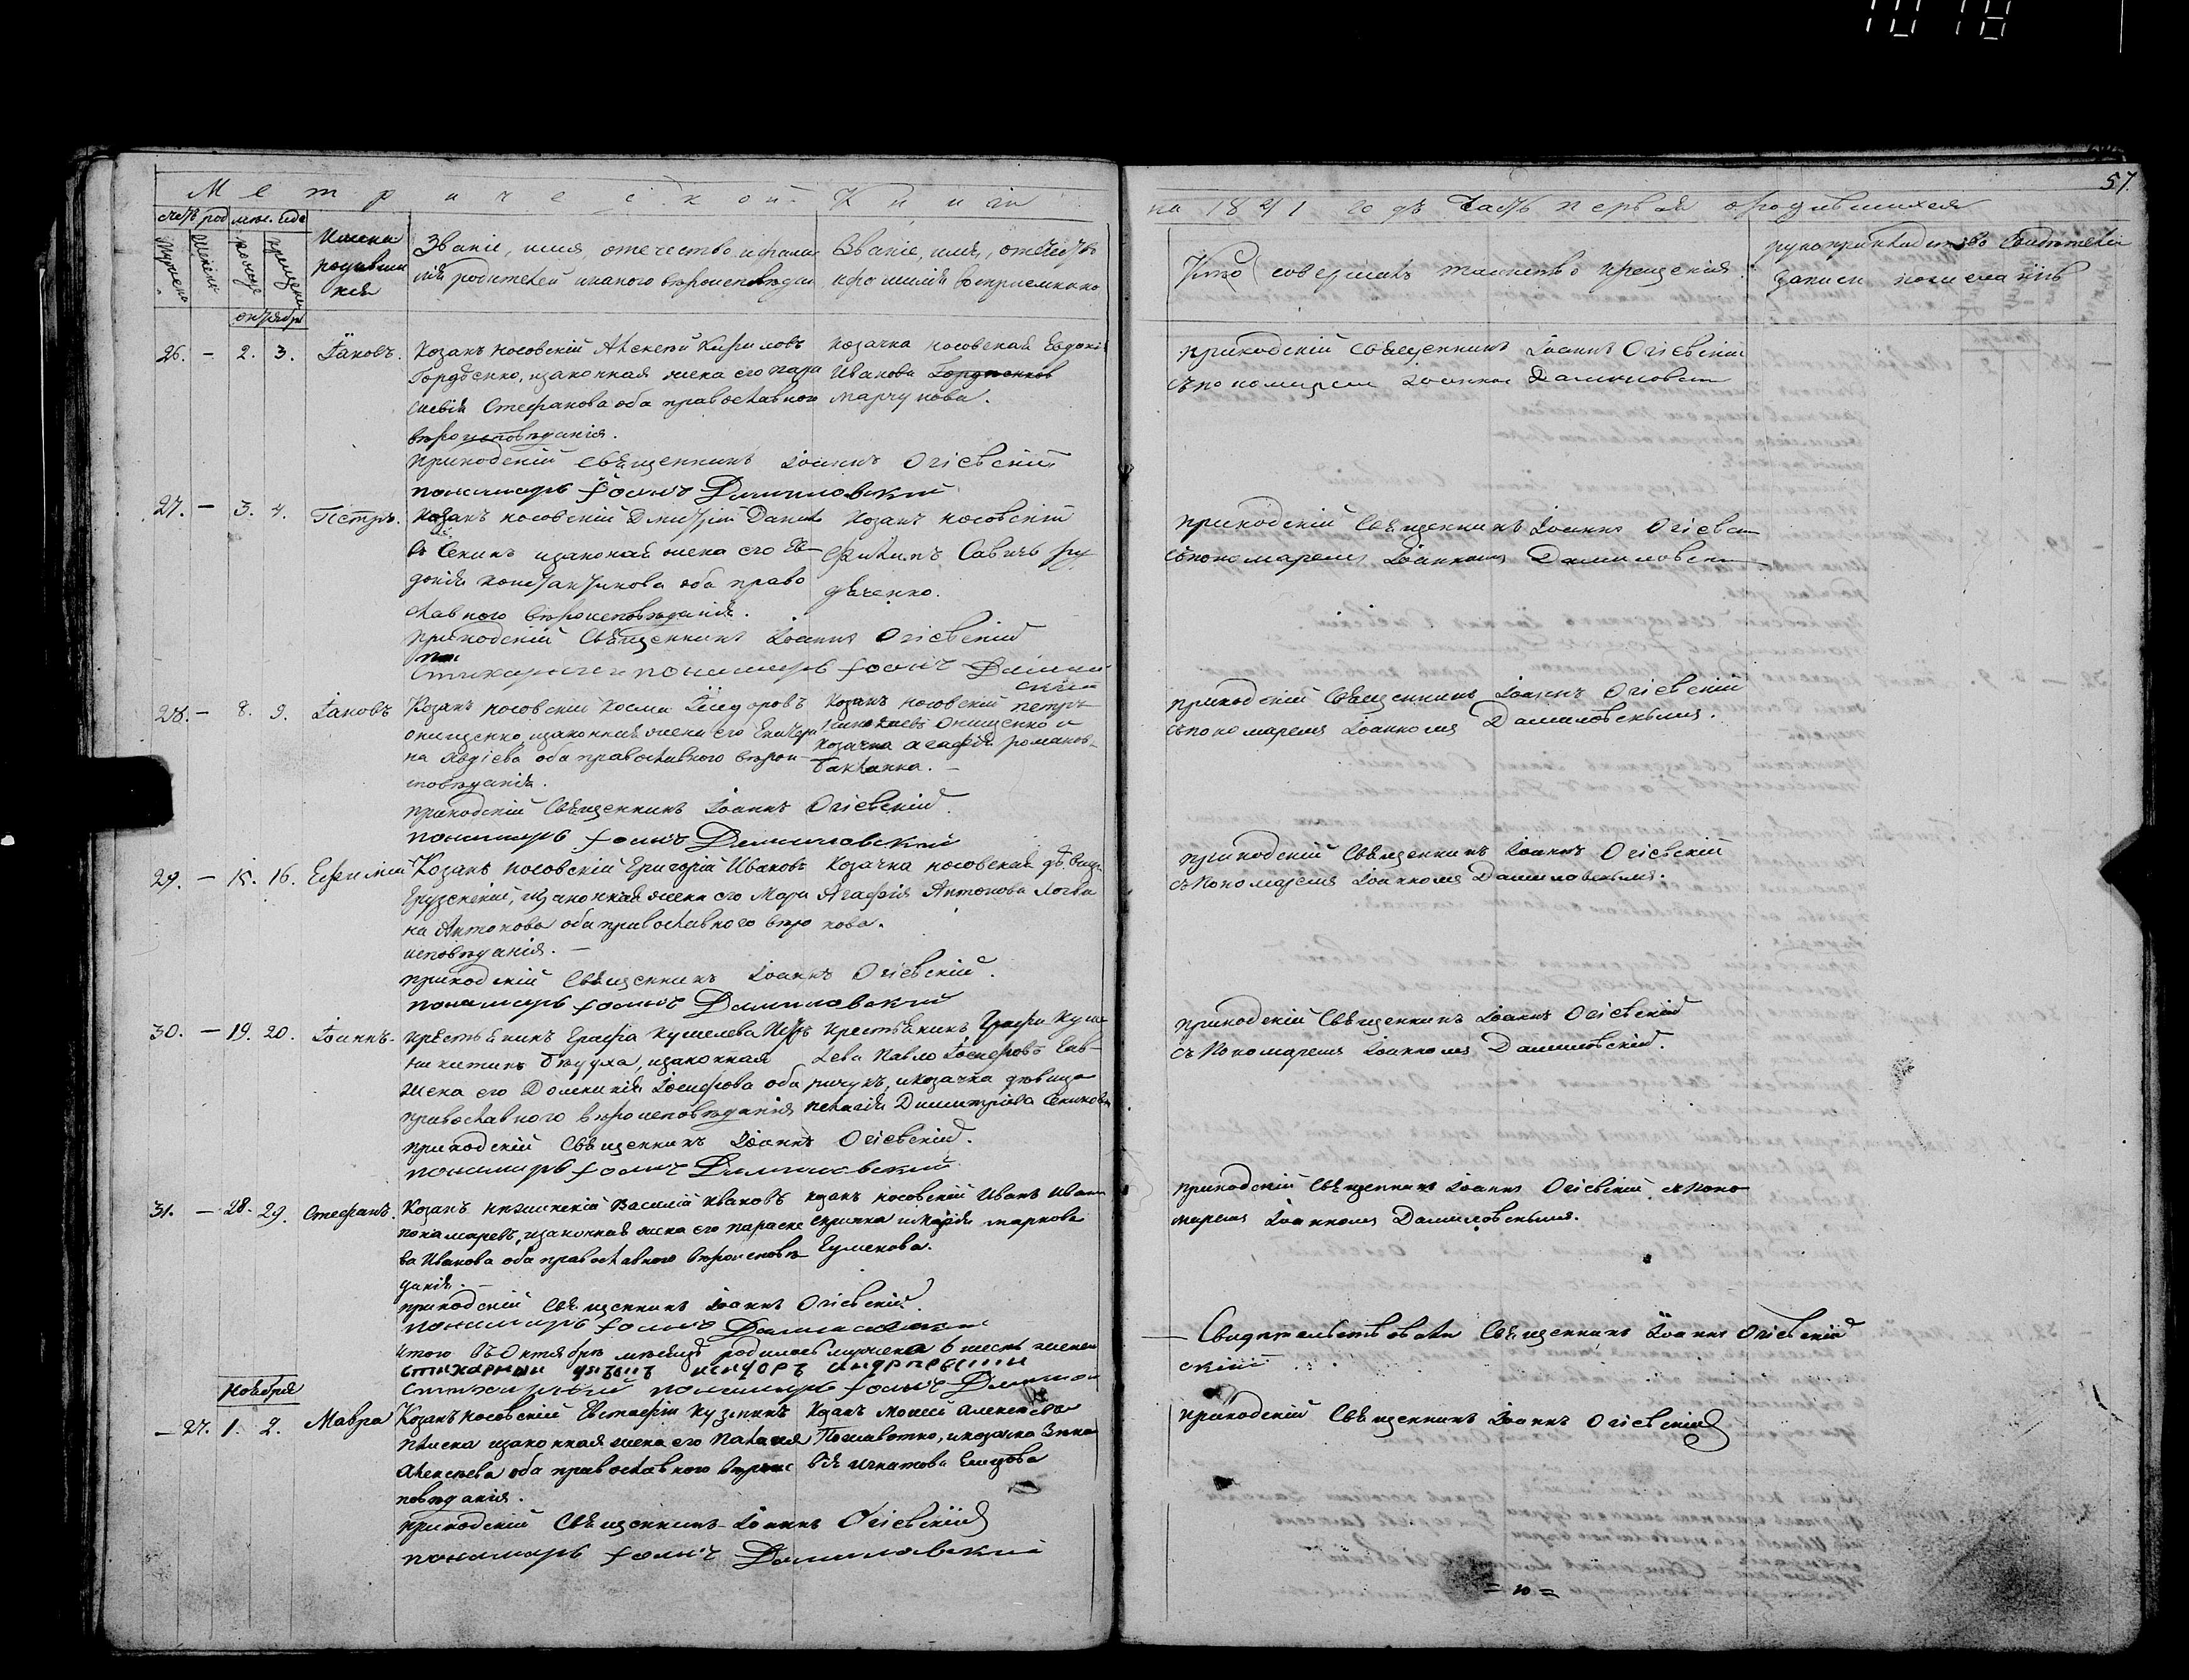 Метрической Книги
на 1841 годъ Часть первая о родившихся
57.
счетъ род
мѣс. Еди
Мужеска
Женска
рожденіе
крещеніе
Имена
родивши
хся
Званіе, имя, отечество и фами
лія родителей и какого вѣроисповѣдан
Званіе, имя, отечество
и фамилія воспріемника
Кто совершалъ таинство крещенія.
рукоприкладство свидѣтелей
записи
октября
26. – 2. 3. Іаковъ.
Козакъ носовскій Алексѣй Кириловъ
Гордѣенко, изаконная жена его пара
скевія Стефанова оба православного
вѣроисповѣданія.
приходскій Священникъ Іоаннъ Огіевскій
пономарь Іоаннъ Даниловскій
козачка носовская Евдокія
Иванова Гордѣенков
Марчукова.
приходскій Священникъ Іоаннъ Огіевскій
съ пономаремъ Іоанномъ Даниловским
27. – 3. 4. Петръ.
козакъ носовскій Дмитрій Данил
въ Секинъ изаконая жена его Ев
докія Константинова оба право
славного вѣроисповѣданія.
приходскій Священникъ Іоаннъ Огіевскій
Стихарный пономарь Іоаннъ Данил
скій
Козакъ носовскій
Филипъ Савичъ Ру
дѣченко.
приходскій Священникъ Іоаннъ Огіевск
съ пономаремъ Іоанномъ Даниловски
28. – 8. 9. Іаковъ
Козакъ носовскій Косма Ѳеодоровъ
онищенко, изаконная жена его Екатери
на Авдіева оба православного вѣрои
сповѣданія.
приходскій Священникъ Іоаннъ Огіевскій.
пономарь Іоаннъ Даниловскій
Козакъ носовскій петръ
Онищенко и
козачка агафія романов
Бакланка. –
приходскій Священникъ Іоаннъ Огіевскій
съ пономаремъ Іоанномъ Даниловскымъ.
29. – 15. 16. Ефимій
Козакъ носовскій Григорій Ивановъ
Грузскскій, изаконная жена его Мари
на Антонова оба православного вѣро
исповѣданія. –
приходскій Священникъ Іоаннъ Огіевскій.
пономарь Іоаннъ Даниловскій
Козачка носовская дѣвица
Агафія Антонова Логви
нова.
приходскій Священникъ Іоаннъ Огіевскій
съ пономаремъ Іоанномъ Даниловскымъ.
30. – 19. 20. Іоаннъ.
крестьянинъ Графа Кушелева Петръ
Никитинъ Бѣдуха, изаконная
жена его Домникія Іосифова оба
православного вѣроисповѣданія
приходскій Священникъ Іоаннъ Огіевскій.
пономарь Іоаннъ Даниловскій
крестьянинъ Графа Куше
лева Павло Іосифовъ Гав
ричукъ, и козачка дѣвица
пелагія Димитріева Секинова
приходскій Священникъ Іоаннъ Огіевскій
съ пономаремъ Іоанномъ Даниловскій.
31. – 28. 29. Стефанъ.
Козакъ нѣжинскій Василій Ивановъ
понамаревъ, изаконная жена его параске
ва Иванова оба православного вѣроисповѣ
данія. –
приходскій Священникъ Іоаннъ Огіевскій.
пономарь Іоаннъ Даниловскій
козакъ носовскій Иванъ Иван
Скрипка и Марія маркова
Гуменова.
приходскій Священникъ Іоаннъ Огіевскій, съ поно
маремъ Іоанномъ Даниловскымъ.
итого въ Октябрѣ мѣсяцѣ родилось мужеска 6 шесть женск
стихарный дьячъ
стихарный пономарь Іоаннъ Данилов
Свидѣтельствовали Священникъ Іоаннъ Огіевскій
скій
Ноября
– 27. 1. 2. Мавра
Козакъ носовскій Евстафій Кузминъ
Плиска изаконная жена его Палагія
Алексѣева оба православного вѣроис
повѣданія.
приходскій Священникъ Іоаннъ Огіевскій
пономарь Іоаннъ Даниловскій
Козакъ Моисей Алексѣевъ
и козачка Зино
вія Игнатова
приходскій Священникъ Іоаннъ Огіевскій
= 10 =